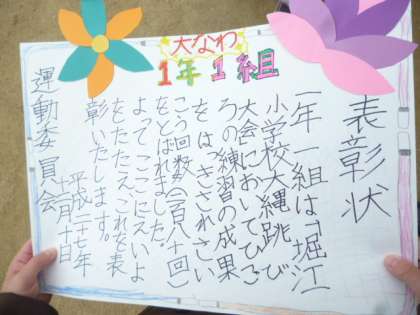 大なわ
1年1組
表彰状
一年一組は「堀江
小学校大縄跳び
大会」においてひご
ろの練習の成果
をはっきされさい
こう回数(百八十回)
をとばれました。
よってここにえいよ
をたたえこれを表
彰いたします。
平成二十七年
月十日
運動委員会